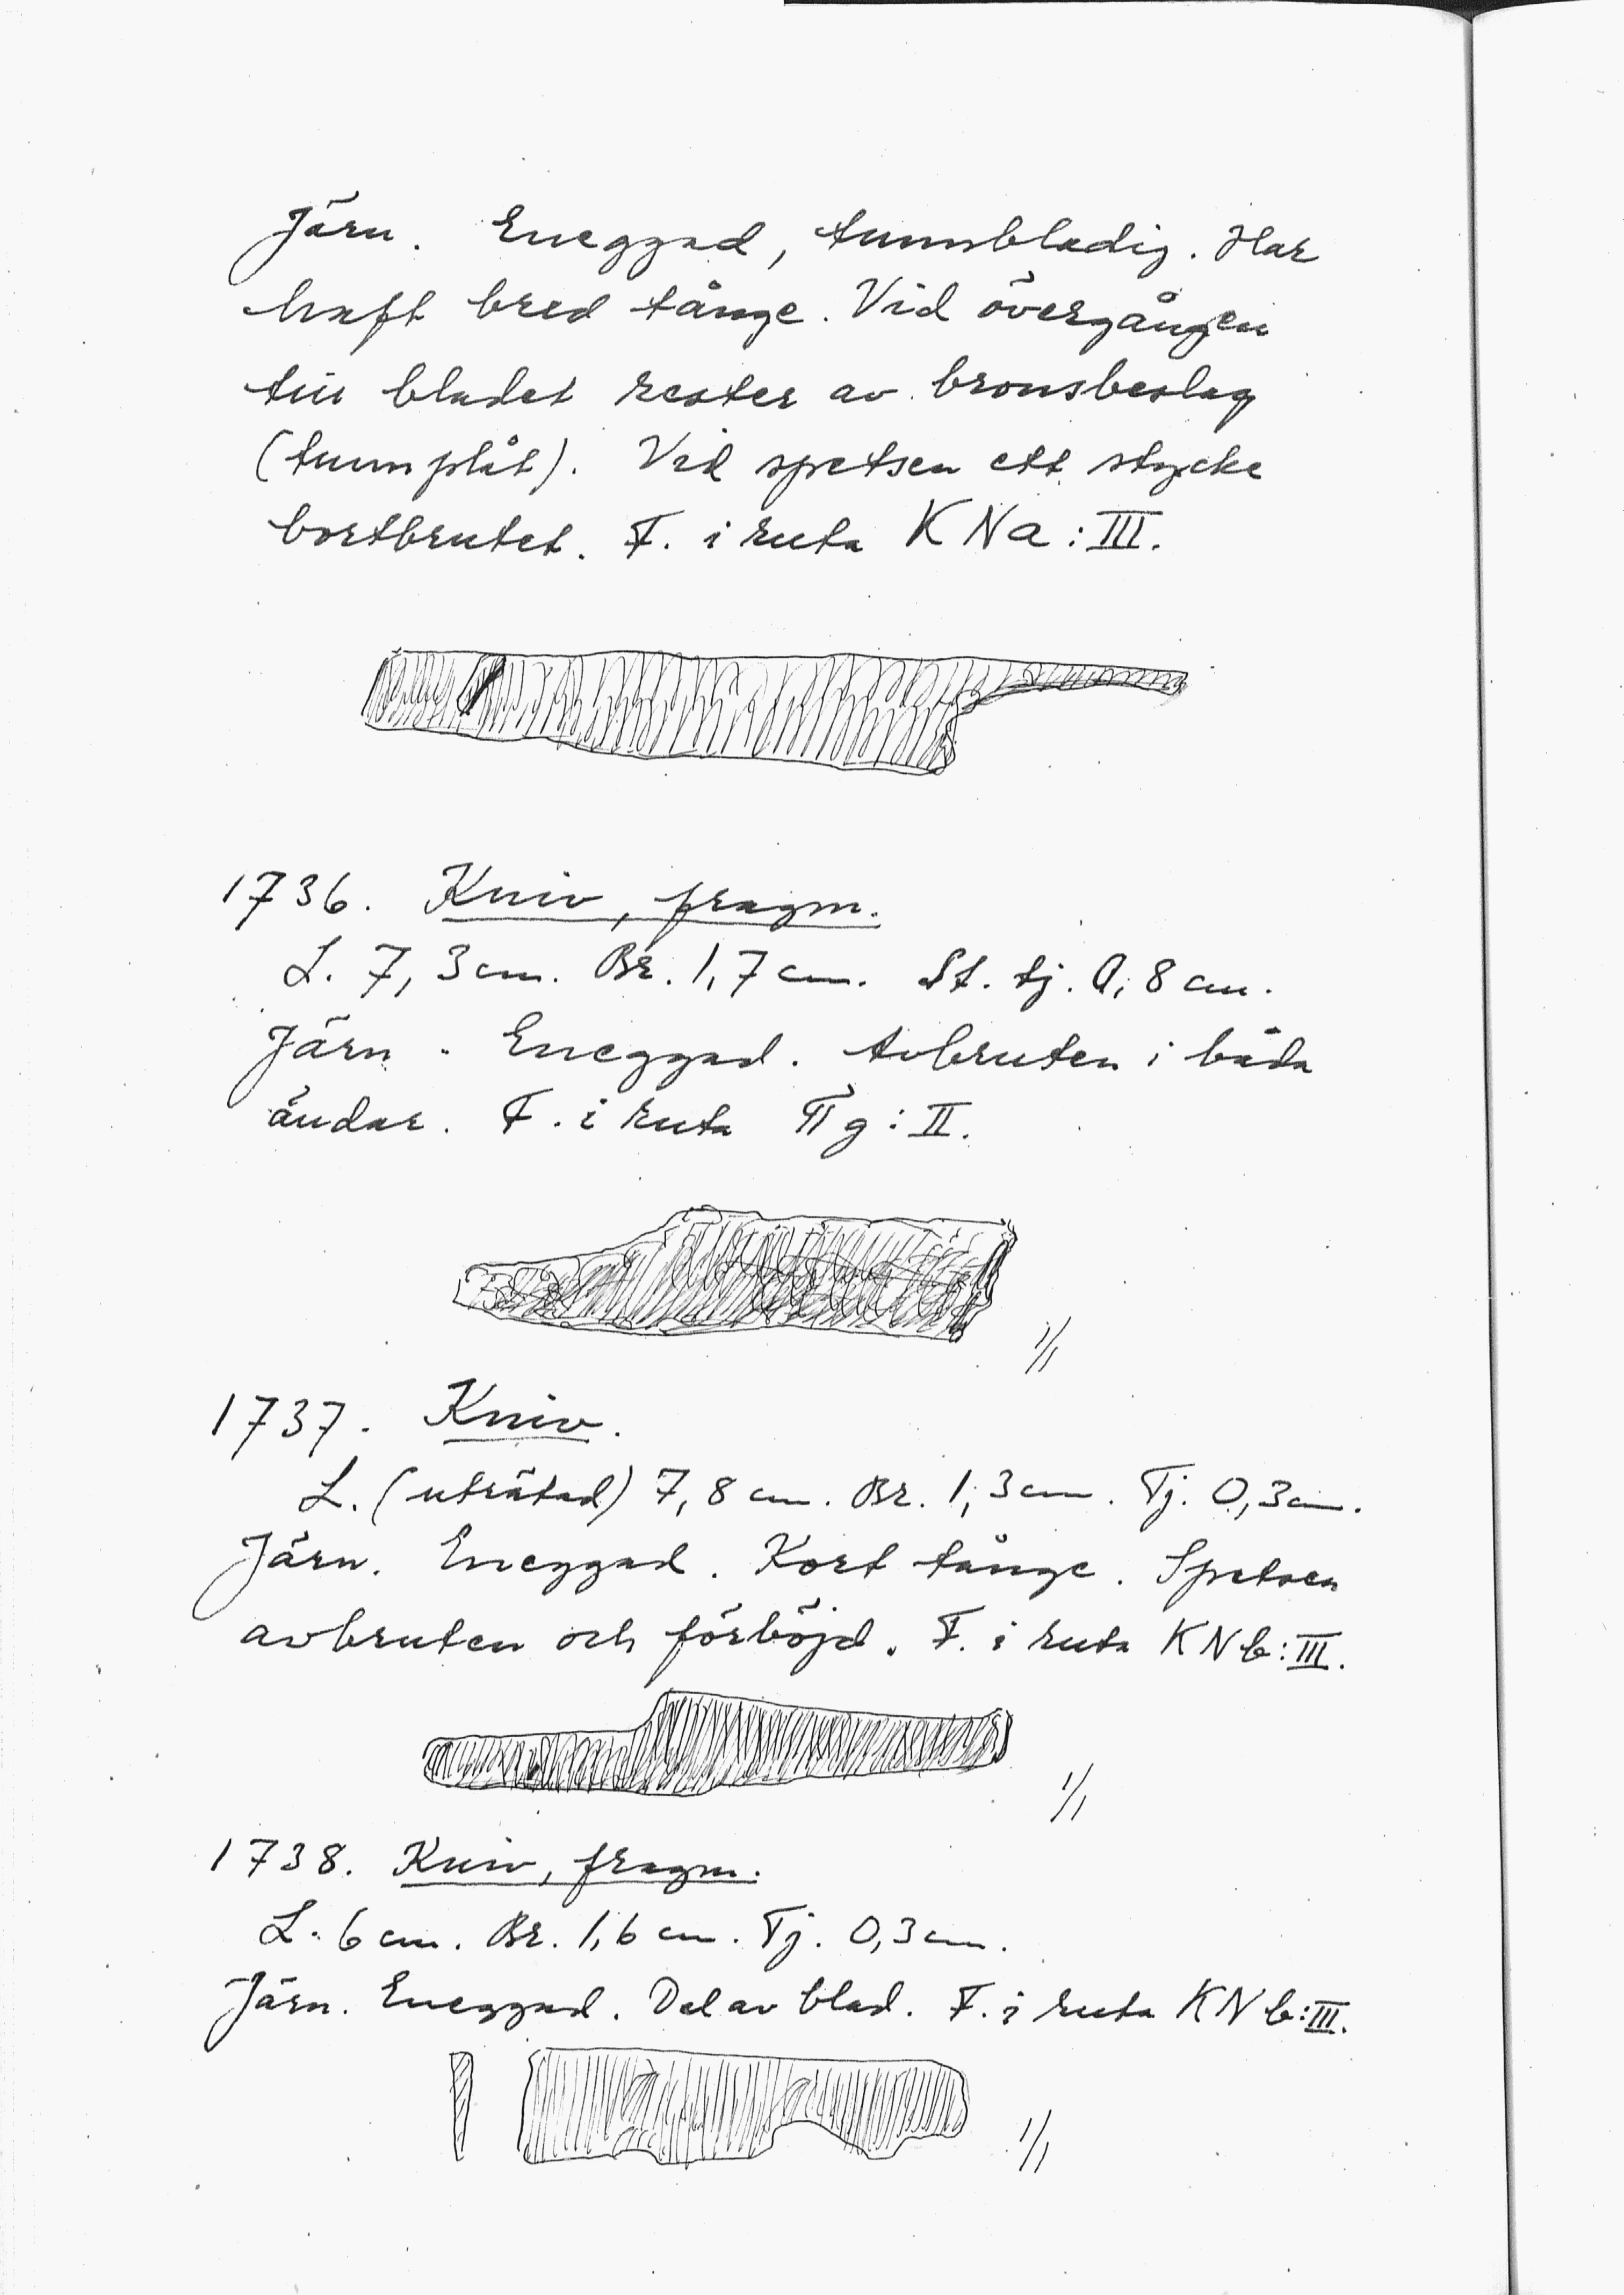 Järn. Eneggad, tunnbladig. Har
haft bred tånge. Vid övergången
till bladet rester av bronsbeslag
(tunn plåt). Vid spetsen ett stycke
bortbrutet. F. i ruta KNa:III.
1736. Kniv, fragm.
L. 7,3 cm. Br. 1,7 cm. St. tj. 0,8 cm.
Järn. Eneggad. Avbruten i båda
ändar. F. i ruta g:II.
1/1
1737. Kniv.
L. (uträtad) 7,8 cm. Br. 1,3 cm. Tj. 0,3 cm.
Järn. Eneggad. Kort tånge. Spetsen
avbruten och förböjd. F. i ruta KNb:III.
1/1
1738. Kniv, fragm.
L. 6 cm. Br. 1,6 cm. Tj. 0,3 cm.
Järn. Eneggad. Del av blad. F. i ruta KNb:III.
1/1